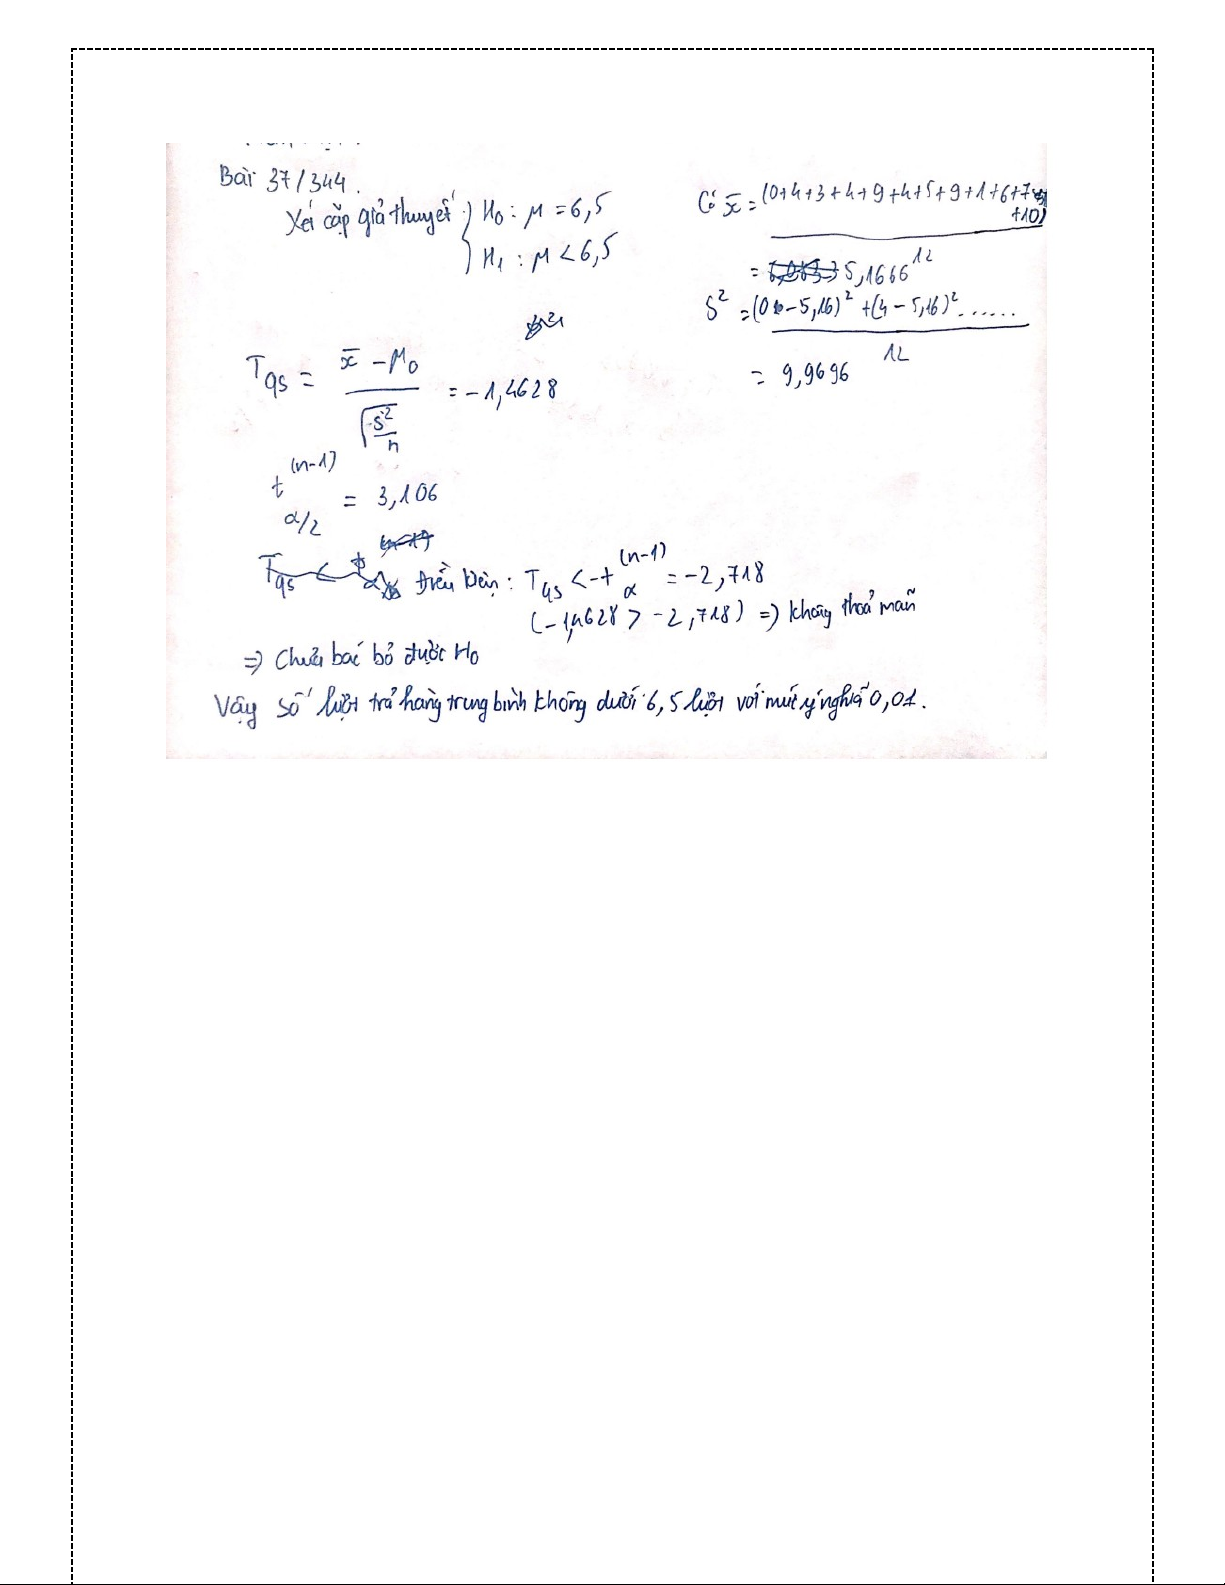 Bài 37/344.
Xét cặp giả thuyết { H₀ : μ = 6,5
H₁ : μ < 6,5
Có x̄ = (0+4+3+4+9+4+5+9+1+6+7
+10)
12
= 5,1666
S² = (0 - 5,16)² + (4 - 5,16)² ......
12
= 9,9696
Tqs = x̄ - μ₀ / √(s²/n) = -1,4628
t (n-1) α/2 = 3,106
Điều kiện : Tqs < -t (n-1) α = -2,718
(-1,4628 > -2,718) => không thoả mãn
=> Chưa bác bỏ được H₀
Vậy số lượt trả hàng trung bình không dưới 6,5 lượt với mức ý nghĩa 0,01.